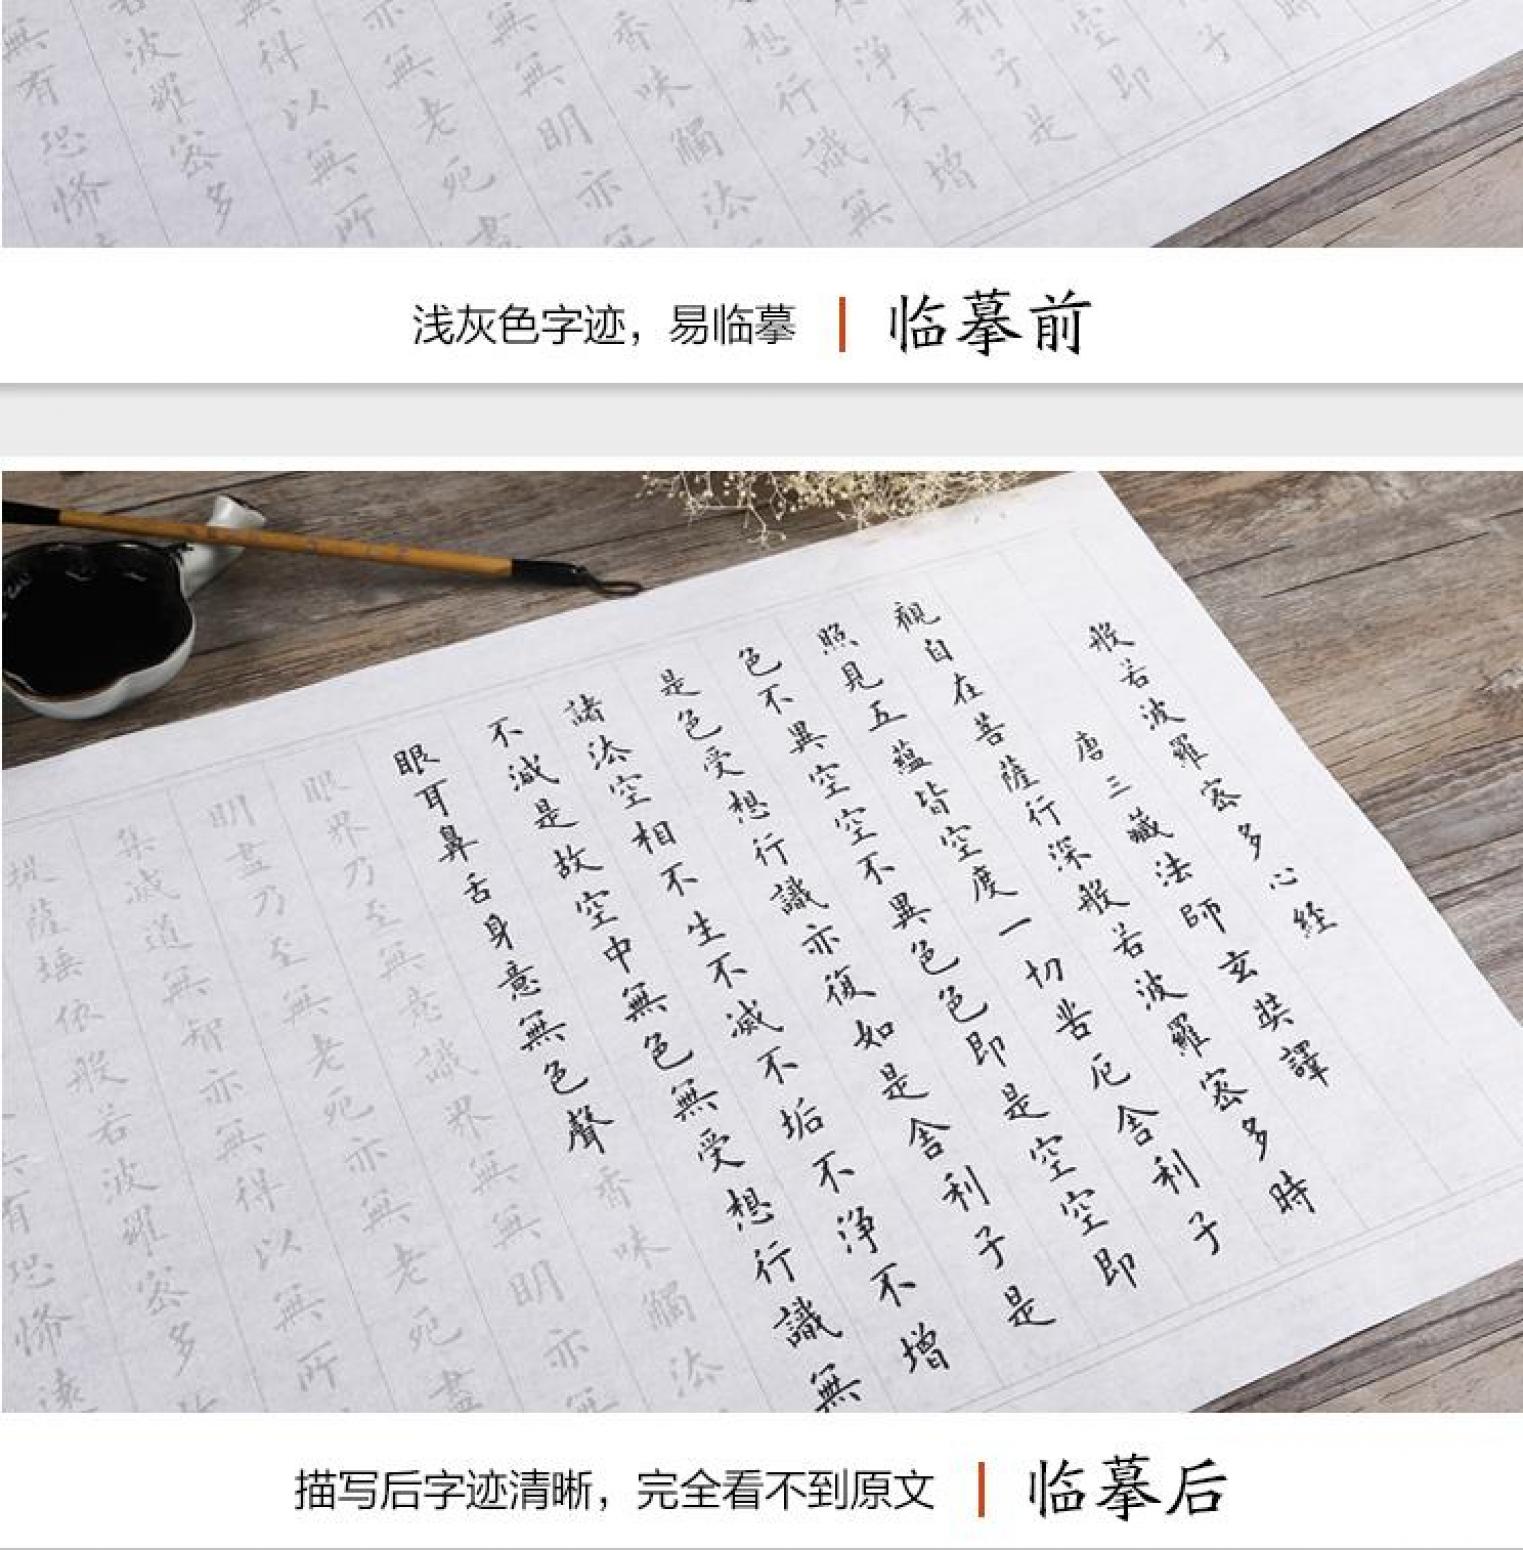 時
子
空即
利子是
淨不增
想行識無
香味觸法
無無明亦無
亦無老死盡
無得以無所
若波羅密多
無有恐怖
浅灰色字迹，易临摹 | 临摹前
般若波羅密多心経
唐三藏法師玄奘譯
觀自在菩薩行深般若波羅密多時
照見五蘊皆空度一切苦厄舍利子
色不異空空不異色色即是空空即
是色受想行識亦復如是舍利子是
諸法空相不生不滅不垢不淨不增
不減是故空中無色無受想行識無
眼耳鼻舌身意無色聲香味觸法
眼界乃至無意識界無無明亦無
明盡乃至無老死亦無老死盡
集滅道無智亦無得以無所
提薩埵依般若波羅密多故
有恐怖遠
描写后字迹清晰，完全看不到原文 | 临摹后